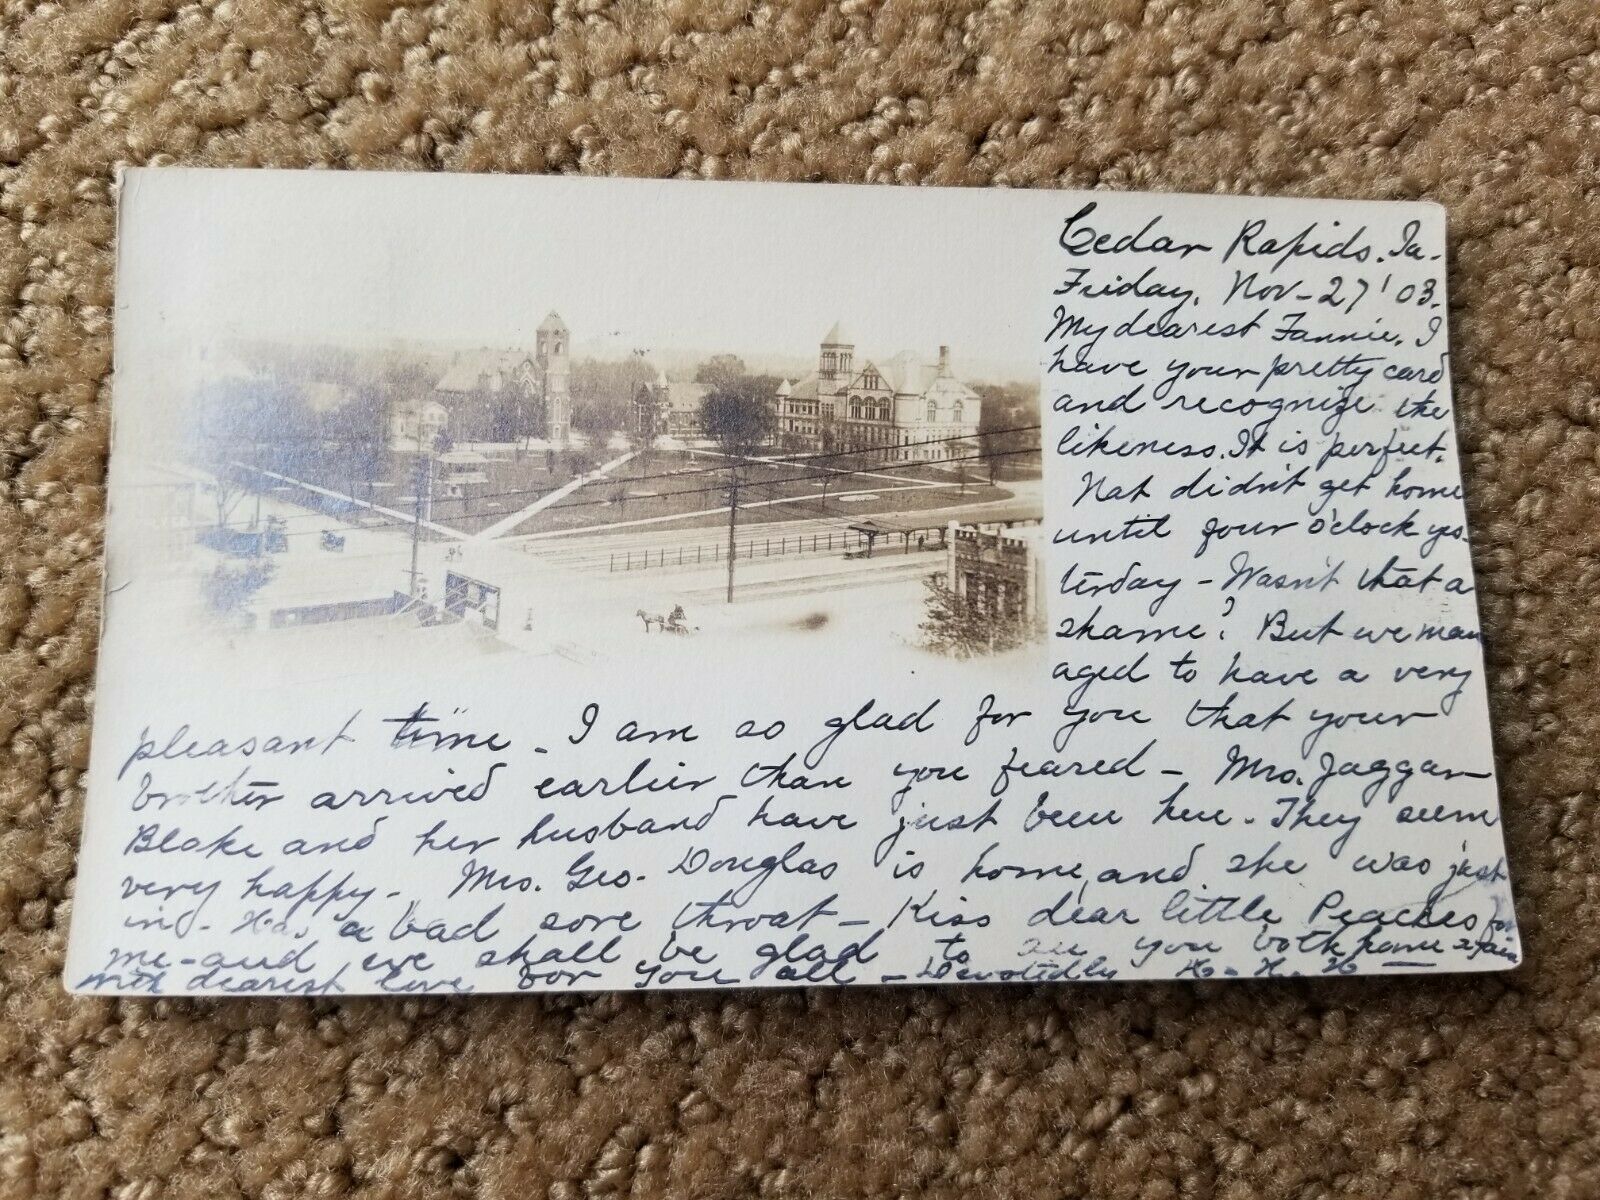 Cedar Rapids. Ia.
Friday, Nov-27'03.
My dearest Fannie. I
have your pretty card
and recognize the
likeness. It is perfect.
Nat didn't get home
until four o'clock yes-
terday - Wasn't that a
shame? But we man
aged to have a very
pleasant time - I am so glad for you that your
brother arrived earlier than you feared - Mrs. Jaggar-
Blake and her husband have just been here. They seem
very happy - Mrs. Geo. Douglas is home, and she was just
in. Has a bad sore throat - Kiss dear little Peaches for
me - and we shall be glad to see you both home again
with dearest love for you all - Devotedly H. H. H